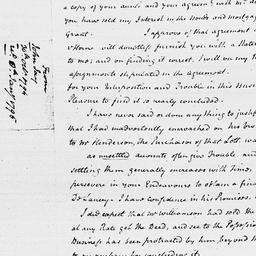 a copy of your and your agreem.t with Mr
you have sold my Interest in the Bonds and mortgag
Grant. I approves of that agreement
Home will doubtless furnish you with a State
to me; and on finding it correct. I will on my
assignments stipulated in the Agreement.
for your Interposition and Trouble in this
Pleasure to find it so nearly concluded.
I have never said or done any thing to justif
that I had inadvertently encroached on his
to Mr Henderson, the Purchaser of that Lott. wa
as unsettled accounts often give Trouble and
settling them generally increases with Time,
persevere in your Endeavours to obtain a fina
DeLancey - I have confidence in his Promises.
I did expect that Mr Williamson had sold the
at any Rate got the Deed, and see to the Possession
Business has been protracted by him beyond
concluded it.
From
John Jay
30 Oct. 1794
1795